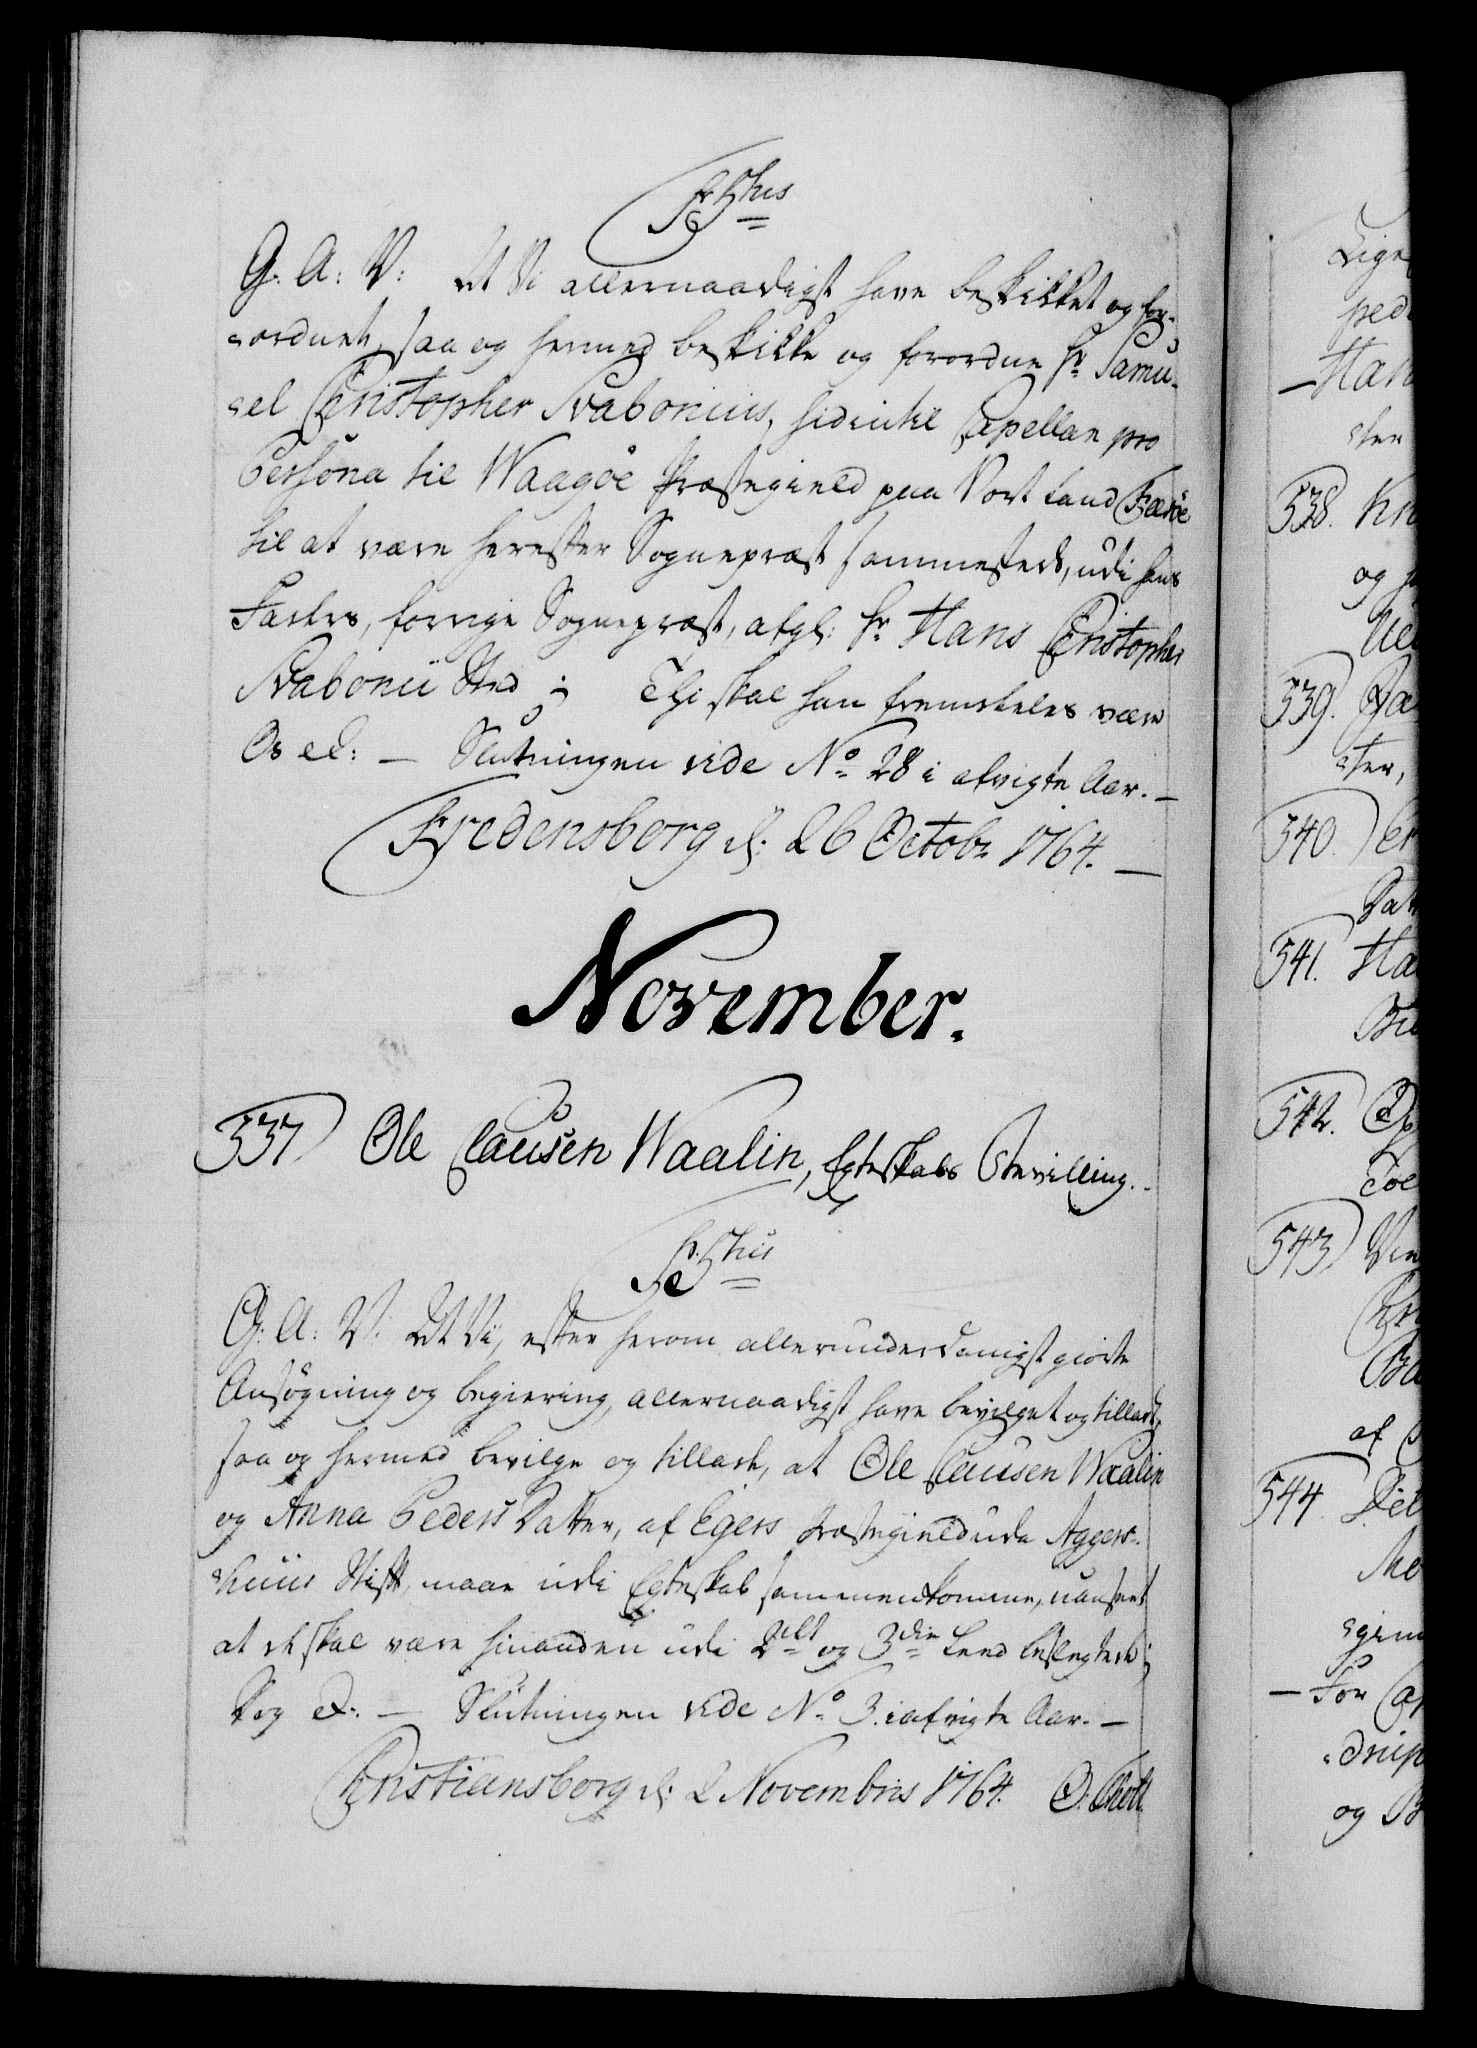 Fr: 5tus
G: A: V: At Vi allernaadigst have beskikket og for-
ordnet, saa og hermed beskikke og forordne Hr Samu-
el Christopher Svabonius, hidintil Capellan pro
Persona til Waagöe Præstegield paa Vort Land Færöe
til at være herefter Sognepræst sammesteds, udi hans
Faders, forrige Sognepræst, afgl: Hr Hans Christopher
Svabonii Sted; Thi skal han fremdeles være
Os etc: — Slutningen vide No 28 i afvigte Aar. —
Fredensborg d: 26 Octobr 1764. —
November.
537 Ole Clausen Waalin, Egteskabs Bevilling.
Fr: 5tus
G: A: V: At Vi, efter herom allerunderdanigst giorte
Ansögning og begiering, allernaadigst have bevilget og tilladt,
saa og hermed bevilge og tillade, at Ole Clausen Waalin
og Anna Peders Datter, af Egers Præstegield udi Aggers-
huus Stift, maae udi Egteskab sammenkomme, uanseet
at de skal være hinanden udi 2det og 3die Leed beslegtede;
Dog etc: — Slutningen vide No 3. i afvigte Aar. —
Christiansborg d: 2 Novembris 1764. O. Thott.
Lige
ped
— Han
ster
538. Kn
og
539. Ja
ster,
540.
Dat
541. Ha
542.
543.
af
544.
— For
og